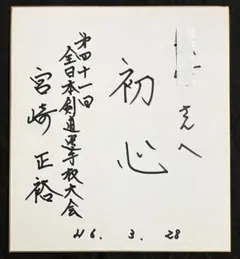 さんへ
初心
第四十一回
全日本剣道選手权大会
宮崎正裕
H6. 3. 28